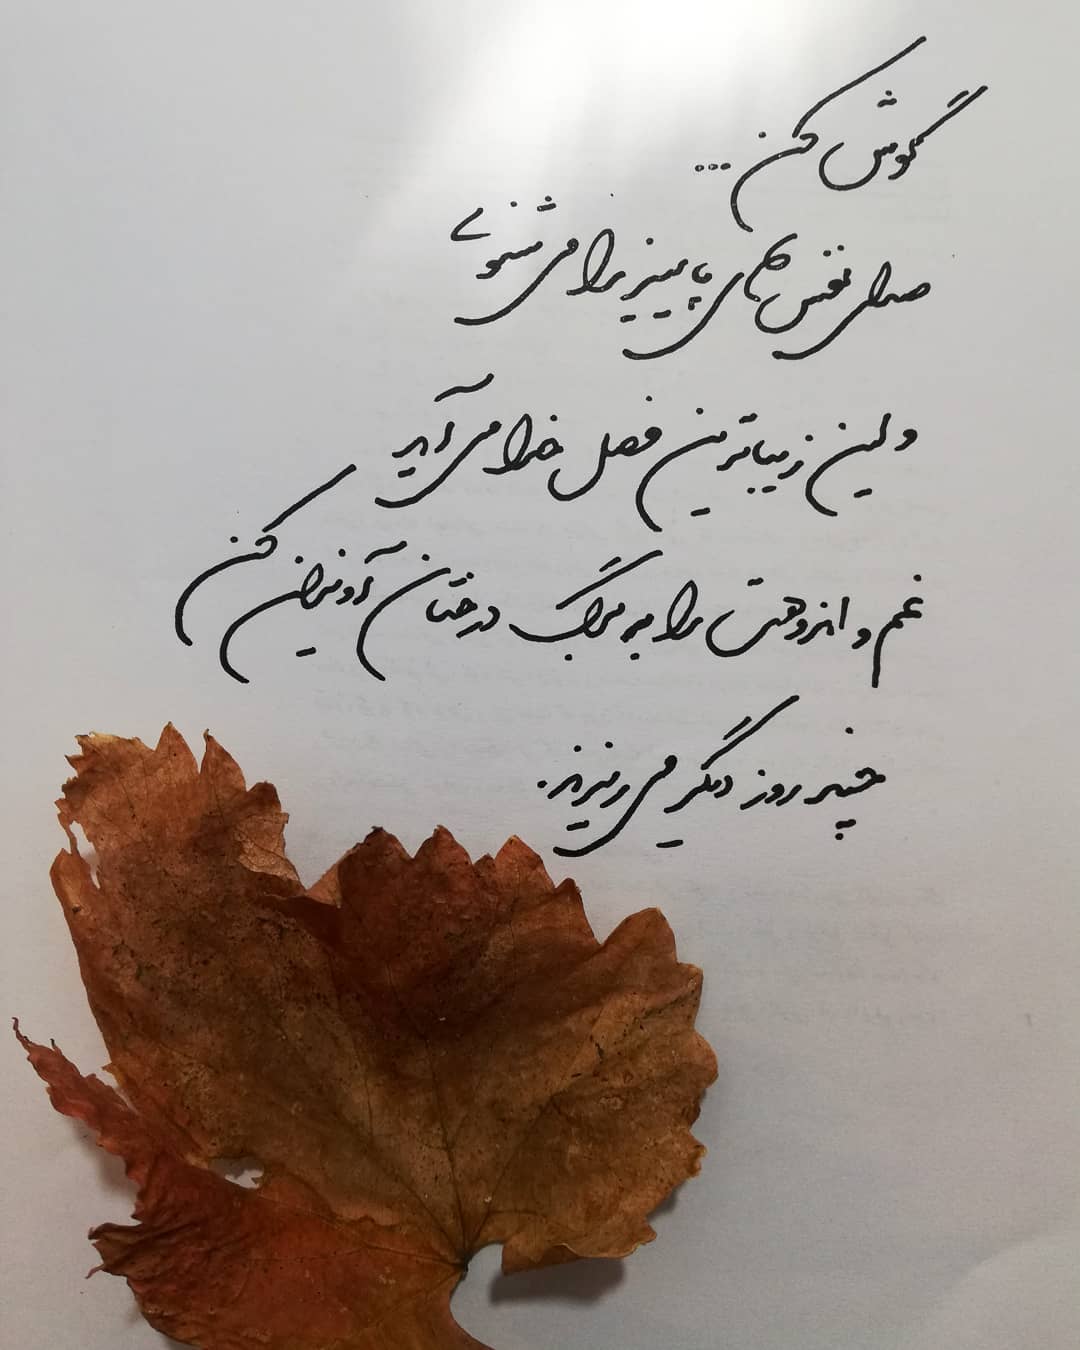 گوش کن ...
صدای نفس های پاییز را می شنوی
و این زیباترین فصل خدا می آید
غم و اندوهت را به برگ درختان آویزان کن
چند روز دیگر می ریزند.